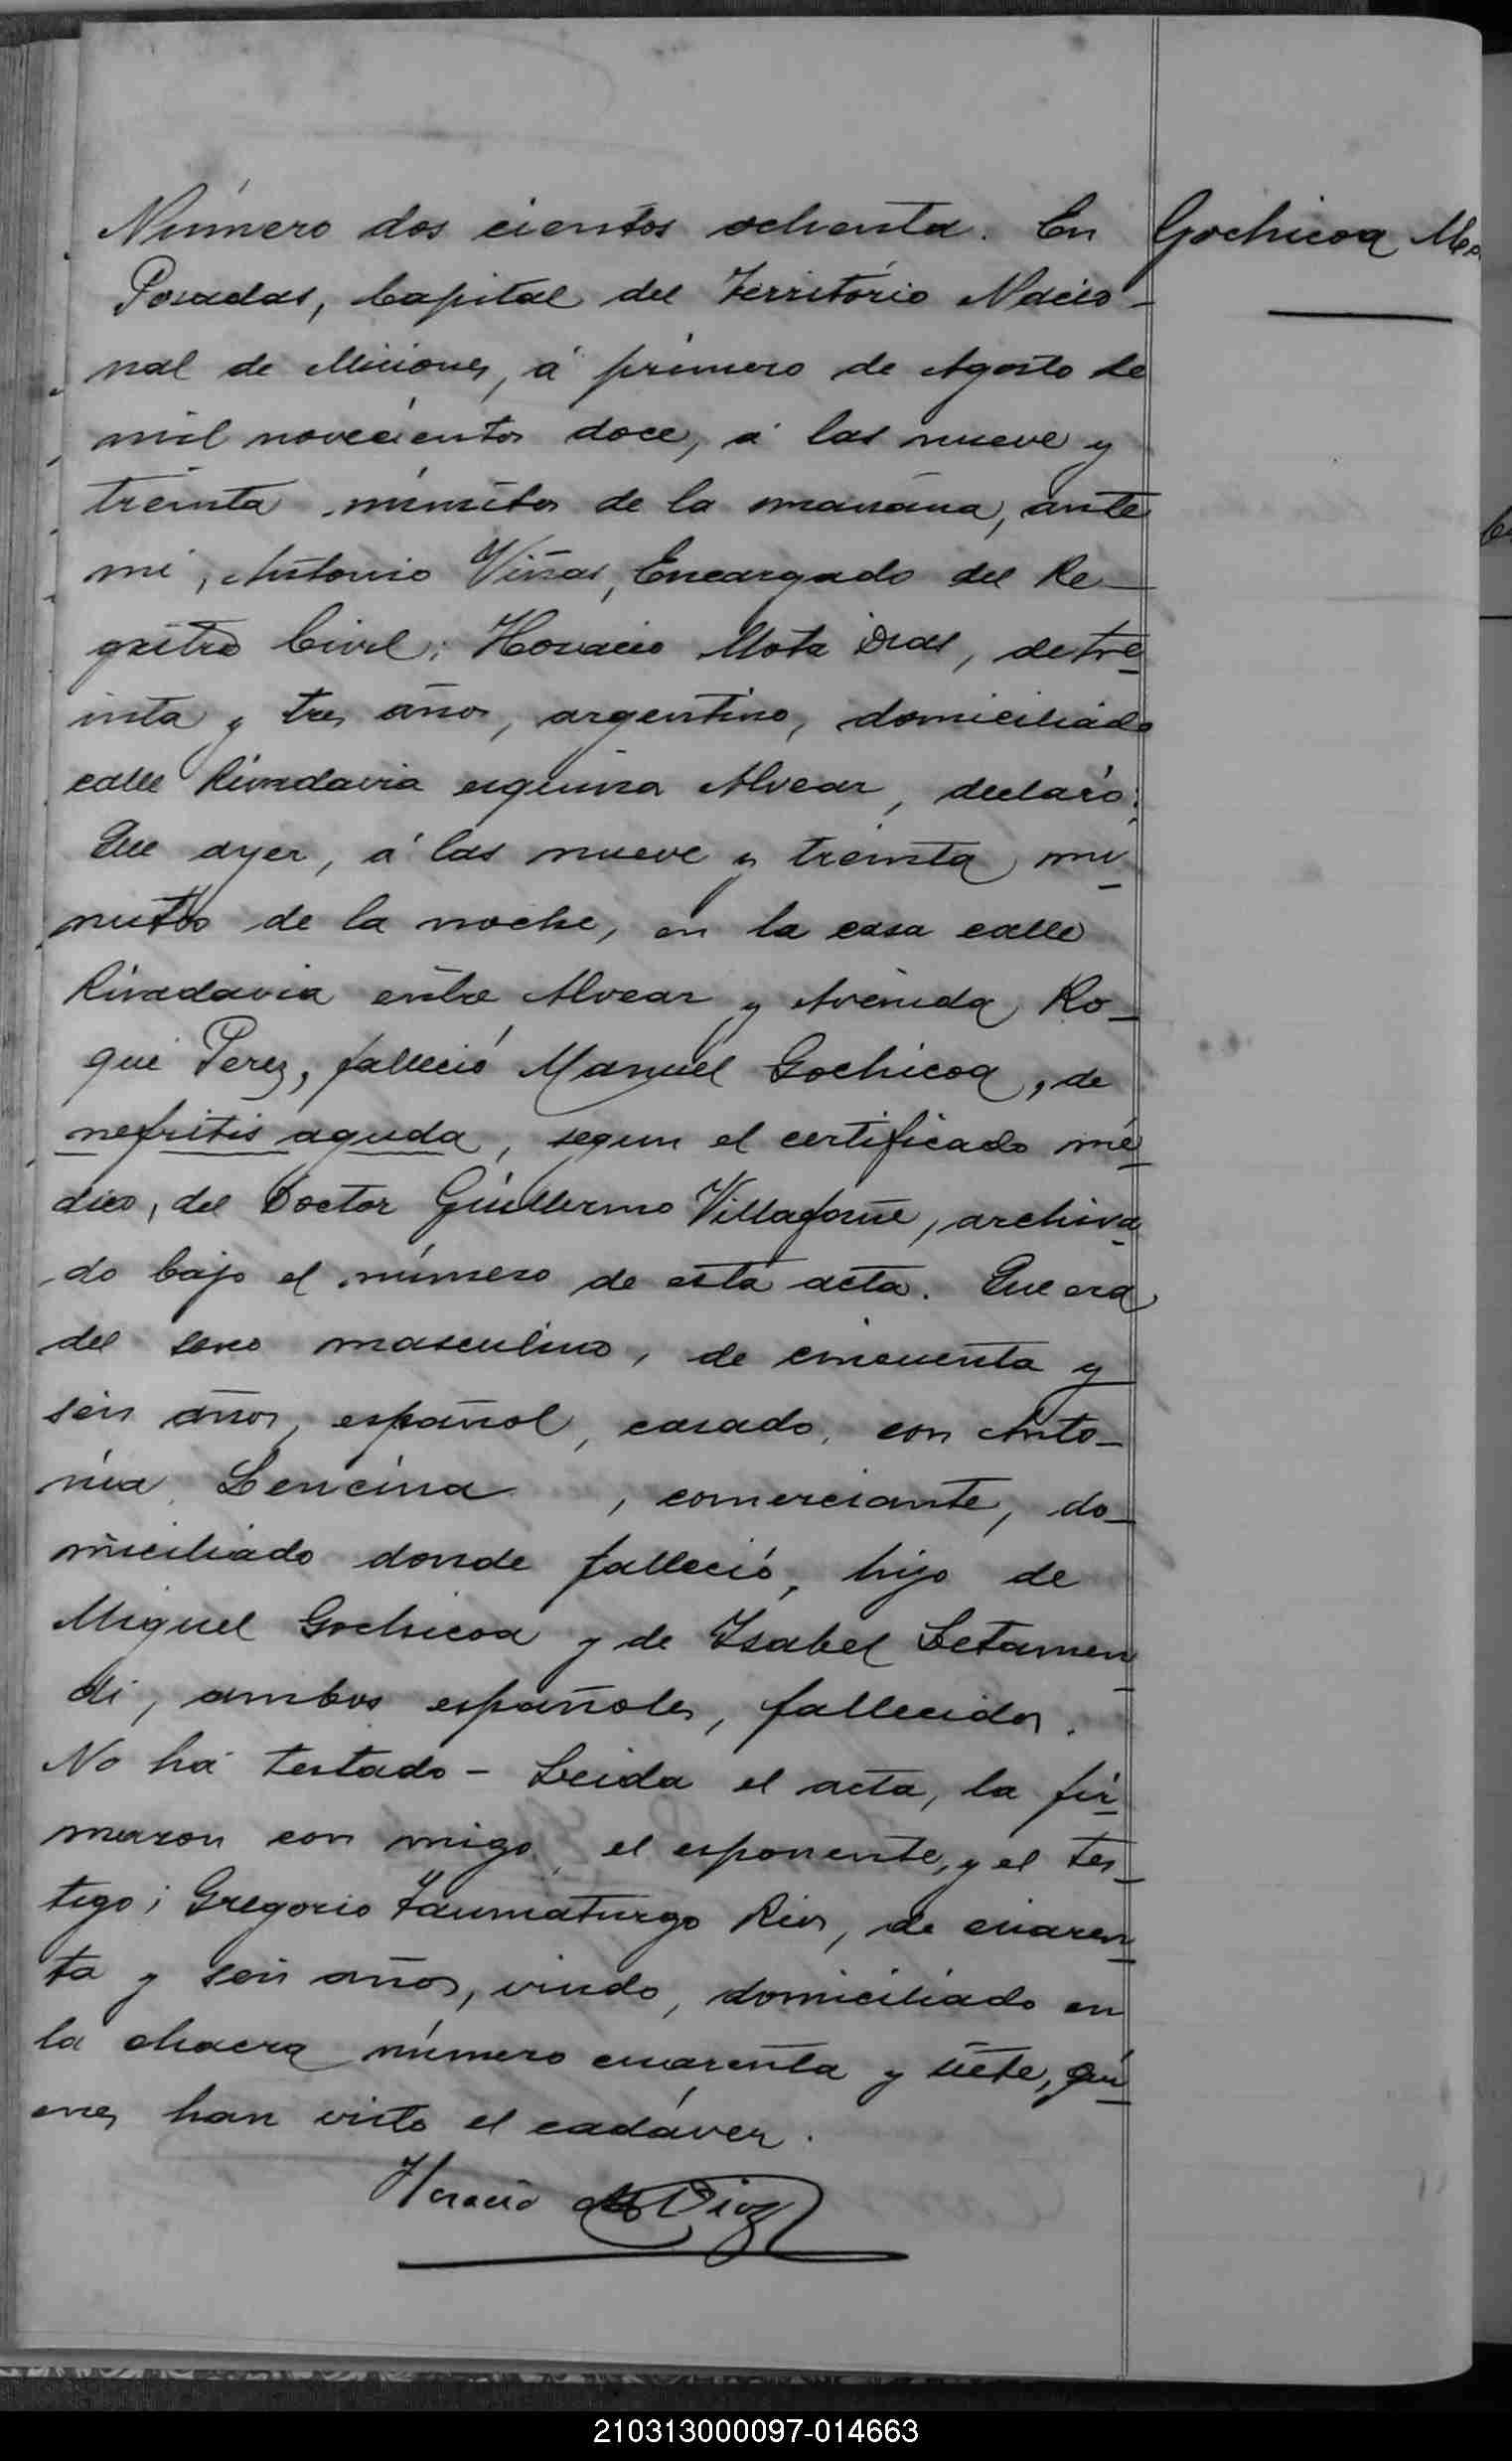 Número dos cientos ochenta. En
Gochicoa Ma
Posadas, Capital del Território Nacio-
nal de Misiones, á primero de Agosto de
mil novecientos doce, á las nueve y
treinta minutos de la mañana, ante
mi, Antonio Viñas, Encargado del Re-
gistro Civil: Horacio Mota Dias, de tre-
inta y tres años, argentino, domiciliado
calle Rivadavia esquina Alvear, declaró:
Que ayer, á las nueve y treinta mi-
nutos de la noche, en la casa calle
Rivadavia entre Alvear y Avenida Ro-
que Perez, falleció Manuel Gochicoa, de
nefritis aguda, segun el certificado mé-
dico, del Doctor Guillermo Villafañe, archiva-
do bajo el número de esta acta. Que era
del sexo masculino, de cincuenta y
seis años, español, casado, con Anto-
nia Lencina, comerciante, do-
miciliado donde falleció, hijo de
Miguel Gochicoa y de Isabel Letamen-
di, ambos españoles, fallecidos.
No há testado - Leida el acta, la fir-
maron con migo, el esponente, y el tes-
tigo; Gregorio Taumaturgo Rios, de cuaren-
ta y seis años, viudo, domiciliado en
la chacra número cuarenta y siete, qui-
enes han visto el cadáver.
Horacio M Diaz
210313000097-014663